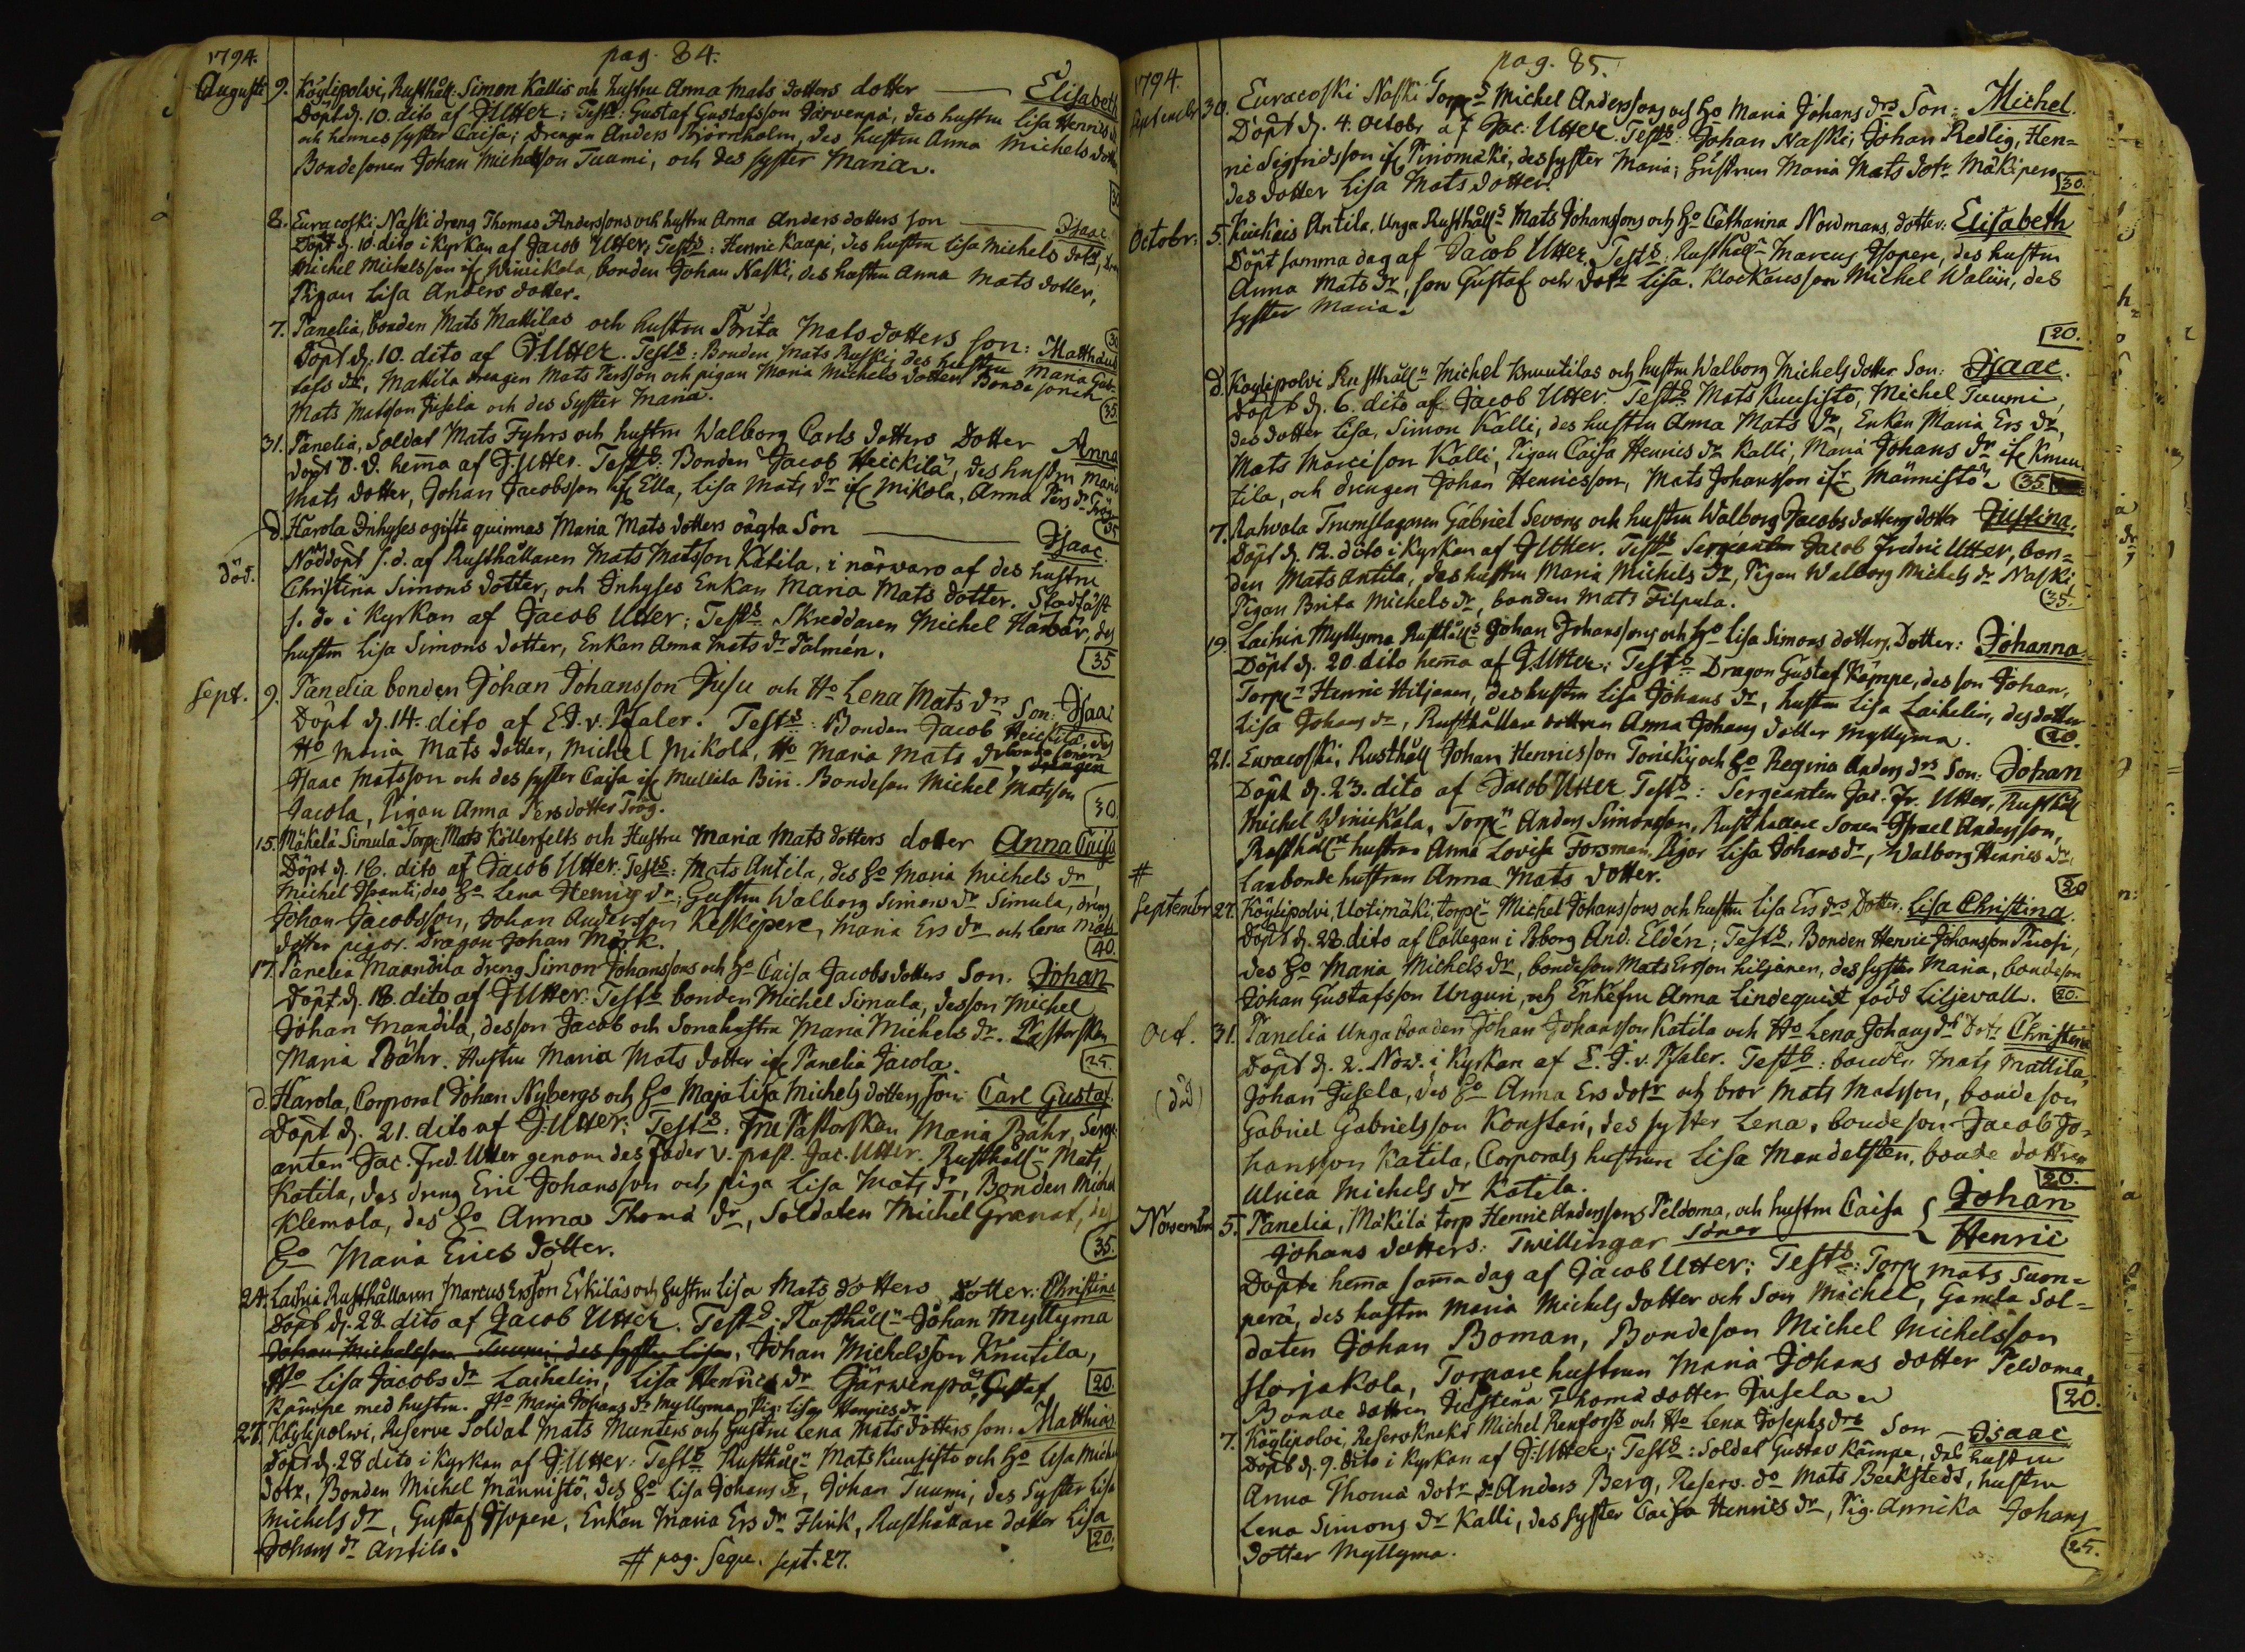 pag. 84.
1794.
Augusti 9. Köylipolvi, Rusthåll. Simon Kallis och hustru Anna Mats dotters dotter Elisabeth
Döpt d. 10. dito af J Utter; Test: Gustaf Gustafsson Järvenpä, des hustru Lisa Henrics
och hennes syster Caisa; drengen Anders Björkholm, des hustru Anna Michels dott
Bondesonen Johan Michelsson Tuomi, och des syster Maria.
30
8. Euracoski Naski dreng Thomas Anderssons och hustru Anna Anders dotters son Isaac
Döpt d. 10. dito i kyrkan af Jacob Utter; Test: Henric Kaapi, des hustru Lisa Michels dotr,
Michel Michelsson if Winikala, bonden Johan Naski, des hustru Anna Mats dotter,
Pigan Lisa Anders dotter.
30
7. Panelia, bonden Mats Mattilas och hustru Brita Mats dotters son: Matthæus
Döpt d. 10. dito af J. Utter. Test: Bonden Mats Ruski, des hustru Maria Gus
tafs dr, Mattila drengen Mats Persson och pigan Maria Michels dotter Bonde sonen
Mats Matsson Jusela och des Syster Maria.
35
31. Panelia, Soldat Mats Fyhrs och hustru Walborg Carls dotters Dotter Anna
döpt s. d. hema af J. Utter. Test: Bonden Jacob Heickilä, des hustru Maria
Mats dotter, Johan Jacobsson if Ella, Lisa Mats dr if Mikola, Anna Pers dr Trög
35
d. Harola Inhyses ogifte quinnas Maria Mats dotters oägta Son Isaac
död. Nöddöpt s. d. af Rusthållaren Mats Matsson Katila, i närwaro af des hustru
Christina Simons dotter, och Inhyses Enkan Maria Mats dotter. Stadfäst
s. d. i kyrkan af Jacob Utter; Test: Skreddaren Michel des
hustru Lisa Simons dotter, Enkan Anna Mats dr Palmén.
35
Sept. 9. Panelia bonden Johan Johansson Jusu och Ho Lena Mats drs Son: Isaac
Döpt d. 14. dito af E J. v. Pfaler. Test: Bonden Jacob Heickilä, des
Ho Maria Mats dotter, Michel Mikola, Ho Maria Mats dr
Isaac Matsson och des syster Caisa if Mullila Biri. Bondeson Michel Matsson
Jacola, Pigan Anna Pers dotter Trög.
30
15. Mäkelä Simula Torp. Mats Köllerfelts och Hustru Maria Mats dotters dotter Anna Caisa
Döpt d. 16. dito af Jacob Utter. Test: Mats Antila, des Ho Maria Michels dr,
Michel Isanti, des Ho Lena Henrics dr; Hustru Walborg Simons dr Simula, dreng
Johan Jacobsson, Johan Andersson Keskipere, Maria Ers dr och Lena Mats
dotter pigor. Dragon Johan Mörk.
40.
17. Panelia Maandila dreng Simon Johanssons och Ho Caisa Jacobs dotters Son. Johan
Döpt. d. 18. dito af J Utter. Test bonden Michel Simula, des son Michel
Johan Mandila, des son Jacob och Sonahustru Maria Michels dr. Pastorskan
Maria Bähr. Hustru Maria Mats dotter if Panelia Jacola.
25.
d. Harola, Corporal Johan Nybergs och Ho Maja Lisa Michels dotters son: Carl Gustaf.
Döpt d. 21. dito af J. Utter: Test: Fru Pastorskan Maria Bähr, Serge
anten Jac. Fred. Utter genom des fader v. past. Jac. Utter. Rusthåll Mats
Katila, des dreng Eric Johansson och piga Lisa Mats dr, Bonden Michel
Klemola, des Ho Anna Thoma dr, Soldaten Michel Granat, des
Ho Maria Erics dotter.
35.
24. Laihia Rusthållaren Marcus Ersson Erkiläs och hustru Lisa Mats dotters Dotter: Christina
Döpt d. 28. dito af Jacob Utter. Test: Rusthåll Johan Myllyma
Johan Michelsson Tuomi des syster Lisa, Johan Michelsson Knutila,
Ho Lisa Jacobs dr Laihelin, Lisa Henrics dr Gärwenpä, Gustaf
Kämpe med hustru. Ho Maria Johans dr Myllyma, Pig: Lisa Henrics dr
20.
27. Köylipolvi, Reserve Soldat Mats Munters och hustru Lena Mats dotters son: Matthias
Döpt d. 28 dito i kyrkan af J. Utter: Test Rusthåll Mats Kuusisto och Ho Lisa Michels
dotr, Bonden Michel Männistö, des Ho Lisa Johans dr, Johan Tuumi, des Syster Lisa
Michels dr, Gustaf Isopere, Enkan Maria Ers dr Flink, Rusthållare dotter Lisa
Johans dr Antila.
20
# pag. Seqve. Sept. 27.
pag. 85.
1794.
September 30. Euracoski Naski Torp Michel Anderssons och Ho Maria Johans drs Son: Michel.
Döpt d. 4. Octobr af Jac: Utter. Test: Johan Naski, Johan Redlig, Hen=
ric Sigfridsson if Piriomäki, des syster Maria; Hustrun Maria Mats dotr Mäkipere
des dotter Lisa Mats dotter.
30.
Octobr: 5. Kiukais Antila, Unga Rusthåll Mats Johanssons och Ho Catharina Nordmans, dotter: Elisabeth
Döpt samma dag af Jacob Utter. Test: Rusthåll Marcus Isopere, des hustru
Anna Mats dr, son Gustaf och dotr Lisa. Klockarsson Michel Walin, des
syster Maria.
20.
d. Köylipolvi Rusthåll Michel Knuutilas och hustru Walborg Michels dotter Son: Isaac.
döpt d. 6. dito af Jacob Utter. Test Mats Kuusisto, Michel Tuumi,
des dotter Lisa, Simon Kalli, des hustru Anna Mats dr, Enkan Maria Ers dr,
Mats Marcison Kalli, Pigan Caisa Henrics dr Kalli, Maria Johans dr if Knuu
tila, och drengen Johan Henricsson, Mats Johansson ifr Männistö.
35
7. Rahvala Trumslagaren Gabriel Sevons och hustru Walborg Jacobs dotters dotter Justina.
döpt d. 12. dito i kyrkan af J Utter. Test Sergeanten Jacob Fredric Utter, bon=
den Mats Antila, des hustru Maria Michels dr, Pigan Walborg Michels dr Naski
Pigan Brita Michels dr, bonden Mats Filpula.
35.
19. Laihia Myllyma Rusthåll Johan Johanssons och Ho Lisa Simons dotters Dotter: Johanna.
Döpt d. 20. dito hema af J Utter; Test Dragon Gustaf Kämpe, des son Johan,
Torp Henric Hiljanen, des hustru Lisa Johans dr, hustru Lisa Laihelin, des dotter
Lisa Johans dr, Rusthållare dottren Anna Johans dotter Myllyma.
20.
21. Euracoski, Rusthåll Johan Henricsson Torickis och Ho Regina Anders drs Son: Johan
Döpt d. 23. dito af Jacob Utter Test: Sergeanten Jac. Fr. Utter, Rusthåll
Michel Winickala, Torp Anders Simonsson, Rusthållare Sonen Israel Andersson,
Rusthåll hustrun Anna Lovisa Forsman, Pigor Lisa Johans dr, Walborg Henrics dr
Lanbonde hustrun Anna Mats dotter.
20
#
September 27. Köylipolvi, Uotimäki, torp Michel Johanssons och hustru Lisa Ers drs Dotter: Lisa Christina.
Döpt d. 28. dito af Collegan i Bborg And: Eldén; Test, Bonden Henric Johansson Tuosi,
des Ho Maria Michels dr, bondeson Mats Ersson Hiljanen, des syster Maria, bondeson
Johan Gustafsson Unguri, och Enkefru Anna Lindequist född Liljevall.
20.
Oct. 31. Panelia Unga bonden Johan Johansson Katila och Ho Lena Johans drs Dotr Christina
Döpt d. 2. Nov. i kyrkan af E. J. v. Pfaler. Test: bonden Mats Mattila,
(död) Johan Jusela, des Ho Anna Ers dotr och bror Mats Matsson, bondeson
Gabriel Gabrielsson Konstari, des syster Lena, bondeson Jacob Jo=
hansson Katila, Corporals hustrun Lisa Mandelsten, bonde dottren
Ulrica Michels dr Katila.
20.
November 5. Panelia, Mäkilä torp Henric Anderssons Peldoma, och hustru Caisa { Johan
Johans dotters: Twillingar Söner Henric
Döpte hema sama dag af Jacob Utter; Test: Torp Mats Suon=
perä, des hustru Maria Michels dotter och Son Michel, Gamla Sol=
daten Johan Boman, Bondeson Michel Michelsson
Storjakola, Torpare hustrun Maria Johans dotter Peldoma,
Bonde dottren Justina Thoma dotter Jusela
20.
7. Köylipolvi, Reservknekt Michel Renfors och Ho Lena Josephs drs Son Isaac
Döpt d. 9. dito i kyrkan af J: Utter; Test: Soldat Gustav Kämpe, des hustru
Anna Thoma dotr, Anders Berg, Reserv. do Mats Beckstedt, hustru
Lena Simons dr Kalli, des syster Caisa Henrics dr, Pig. Annika Johans
dotter Myllyma.
25.